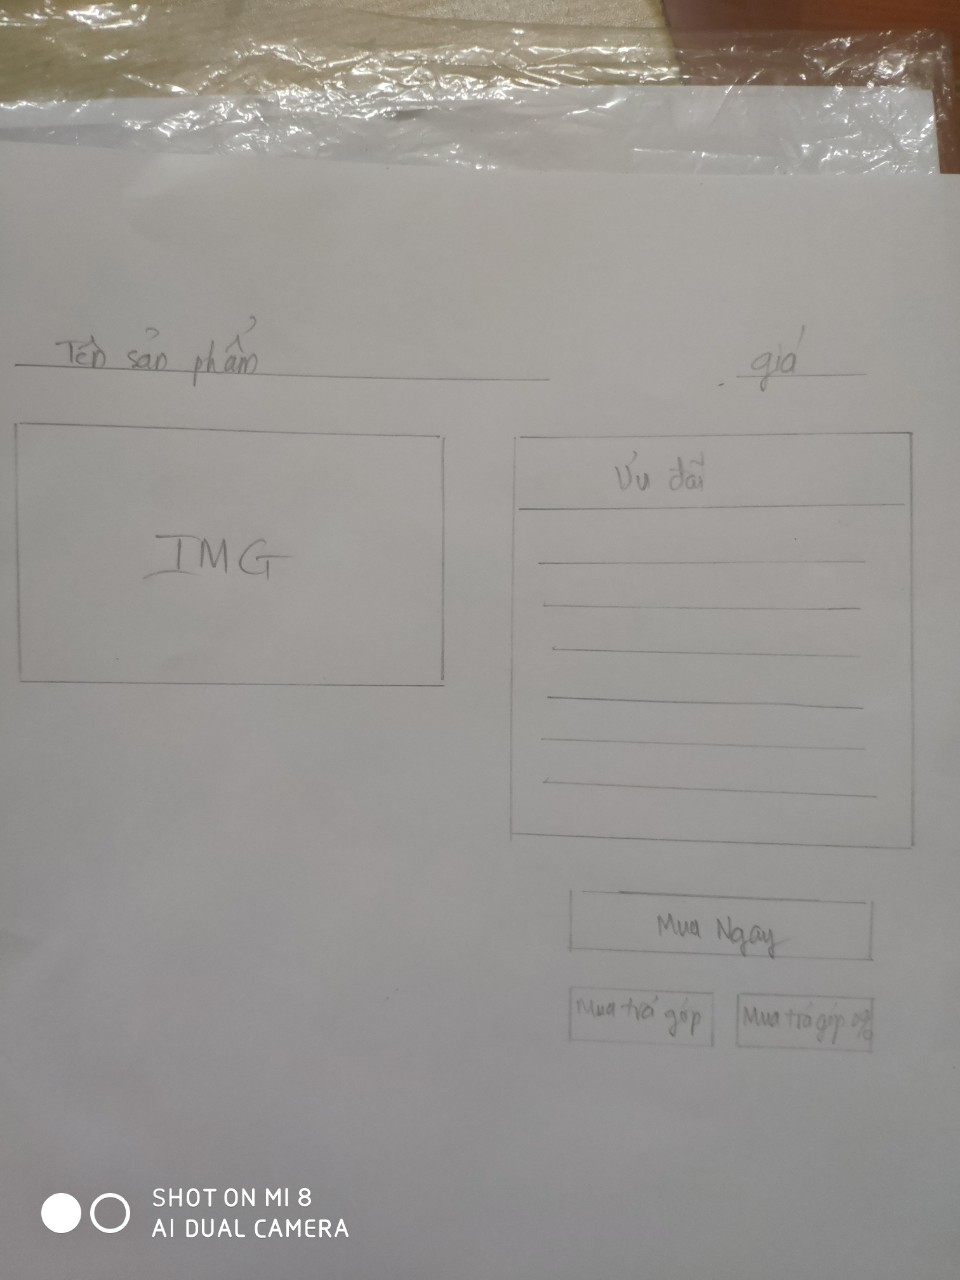 Tên sản phẩm
giá
IMG
Ưu đãi
Mua Ngay
Mua trả góp
Mua trả góp 0%
SHOT ON MI 8
AI DUAL CAMERA